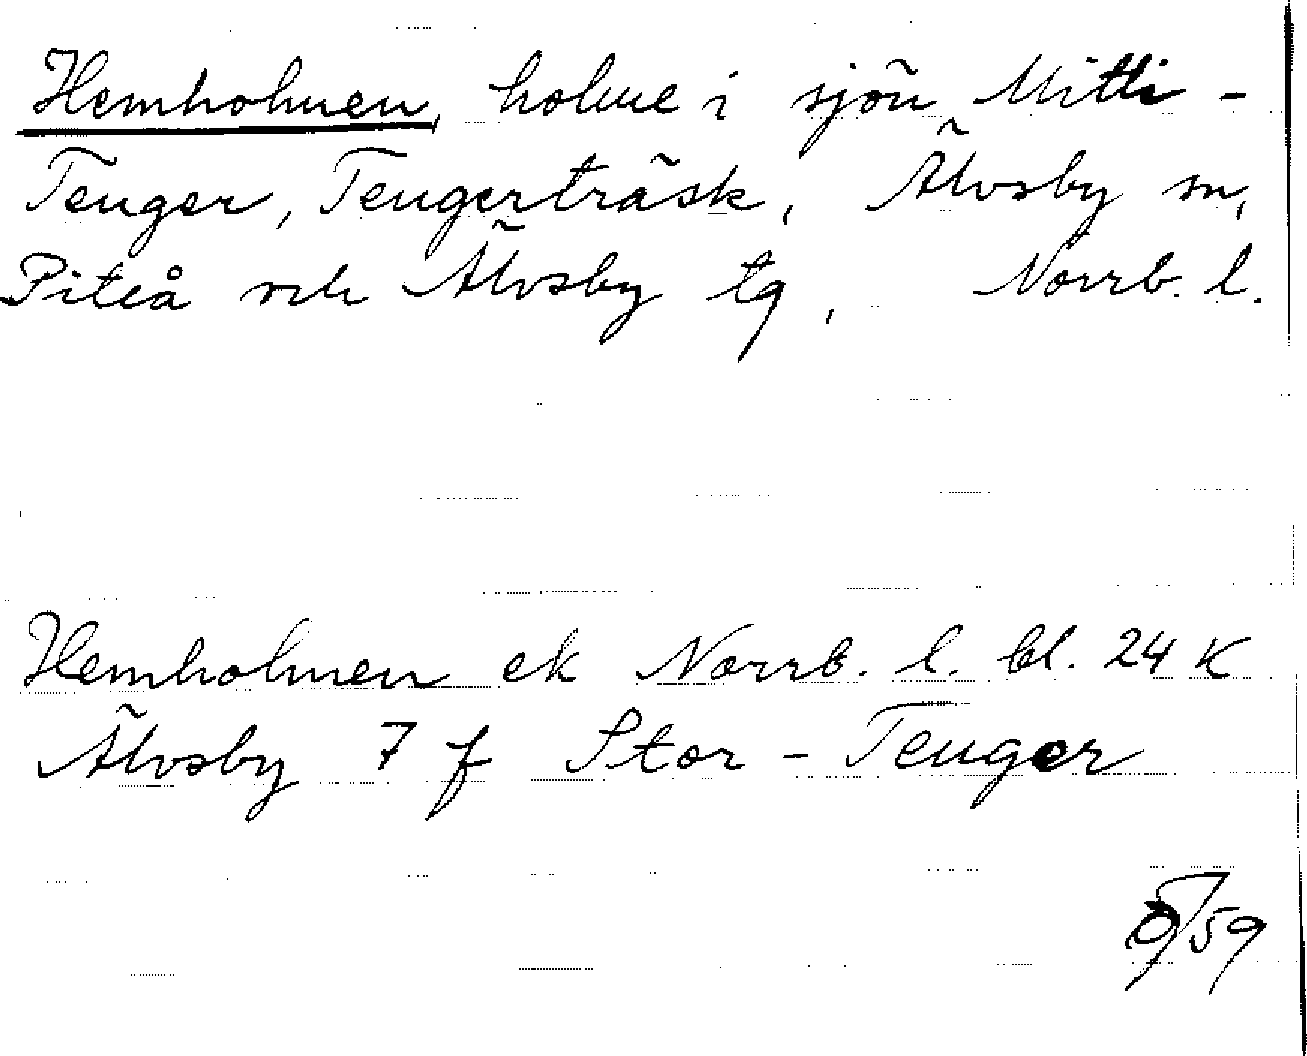 Hemholmen, holme i sjön Mitti-
Teuger, Teugerträsk, Älvsby sn,
Piteå och Älvsby tg, Norrb. l.
Hemholmen ek Norrb. l. bl. 24 K
Älvsby 7 f Stor-Teuger
/59